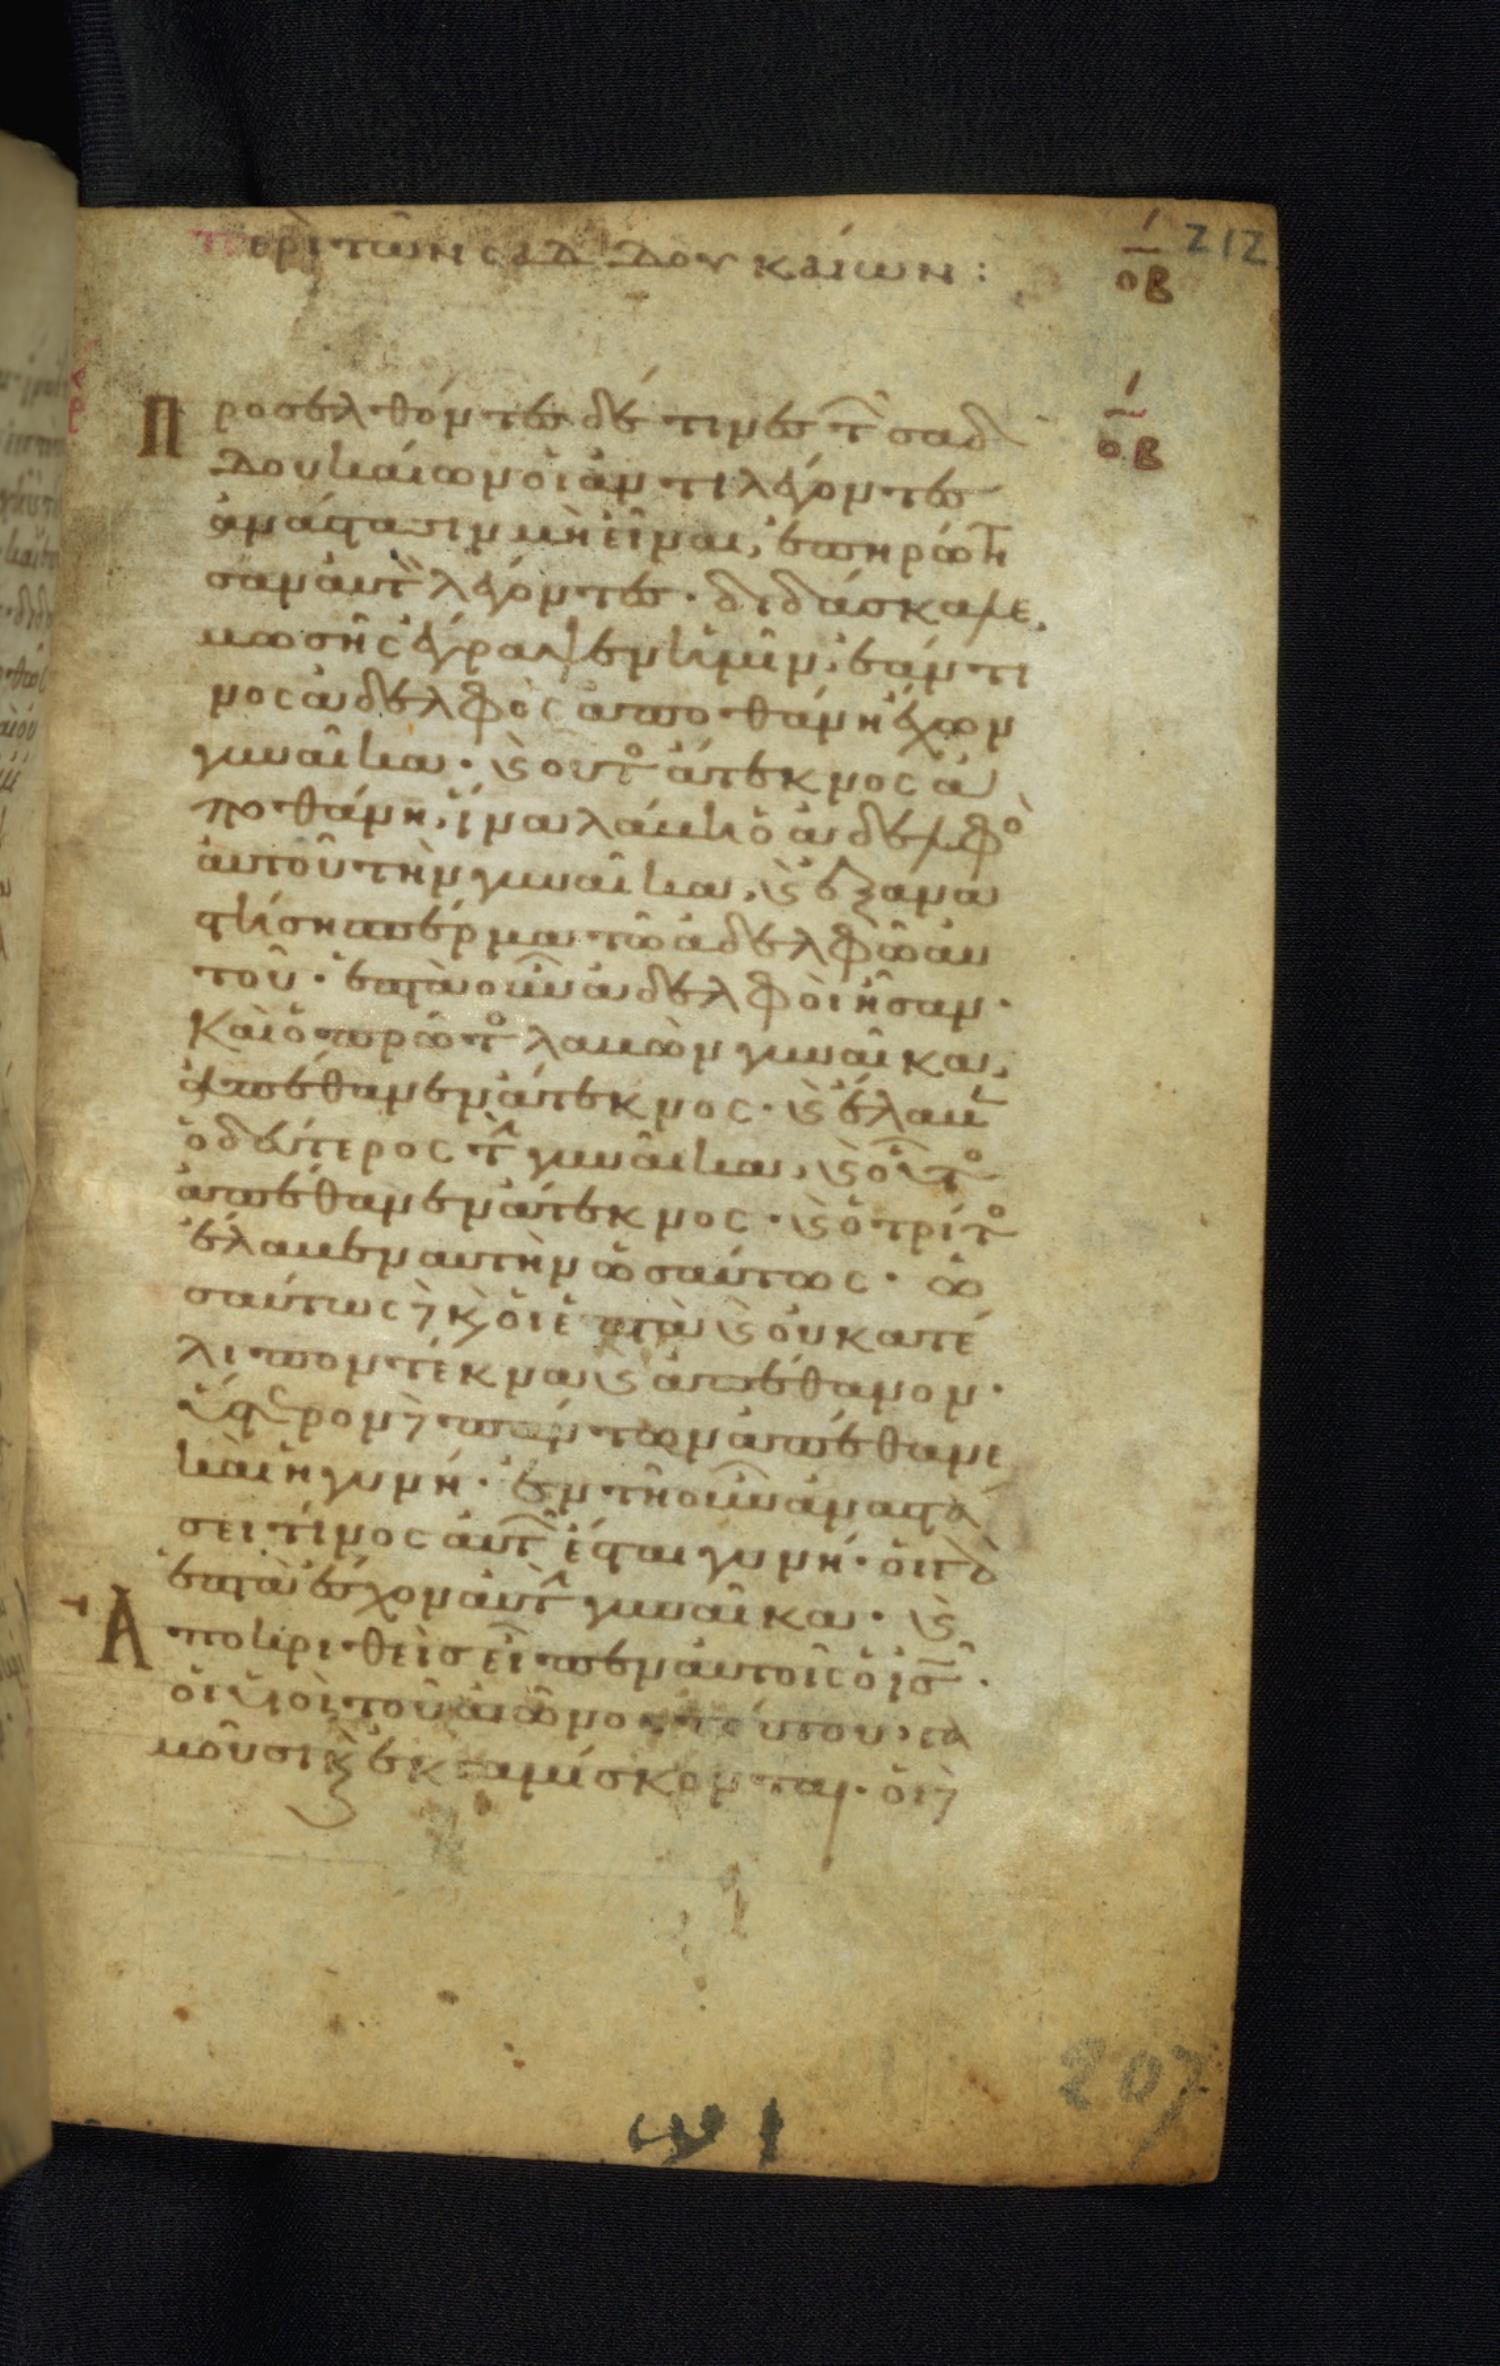 περὶ τῶν σαδδουκαίων :
212
οβ
Π ροσελθόντες δέ τινες τ̂ σαδ
οβ
δουκαίων ὁι ἀντιλέγοντες
ἀνάστασιν μὴ εἶναι, ἐπηρώτη
σαν ἀυτ̀ λέγοντες · διδάσκαλε,
μωσῆς ἔγραψεν ἡμῖν, ἐάν τι
νος ἀδελφὸς ἀποθάνη ἔχων
γυναῖκα · ϗ ουτο ἄτεκνος ἀ
ποθάνη, ἵνα λάβη ὁ ἀδελφο
ἀυτοῦ τὴν γυναῖκα, ϗ ἐξανα
στήση σπέρμα τῶ ἀδελφῶ ἀυ
τοῦ · ἑπτὰ οὖν ἀδελφοὶ ἦσαν ·
Καὶ ὁ πρῶτο λαβὼν γυναῖκα,
ἀπέθανεν ἄτεκνος · ϗ ἔλαβ
ὁ δεύτερος τ̂ γυναῖκα, ϗ οὗτο
ἀπέθανεν ἄτεκνος · ϗ ὁ τρίτο
ἔλαβεν αυτὴν ὡσαύτως · ὡ
σαύτως ϗ ὁι ἑπτὰ ϗ ὀυ κατέ
λιπον τέκνα ϗ ἀπέθανον ·
ὕστερον πάντων ἀπέθανε
καὶ ἡ γυνή · ἐν τῆ οὖν ἀναστά
σει τίνος ἀυτ̂ ἔσται γυνή · ὁι
ἑπτὰ ἔσχον ἀυτ̂ γυναῖκα · ϗ
Ἀ ποκριθεὶς εἶπεν ἀυτοῖς ὁ ἰσ̄ ·
ὁι ὑιοὶ τοῦ ἀιῶνος τούτου, γα
μοῦσι ϗ ἐκγαμίσκονται · ὁι
207